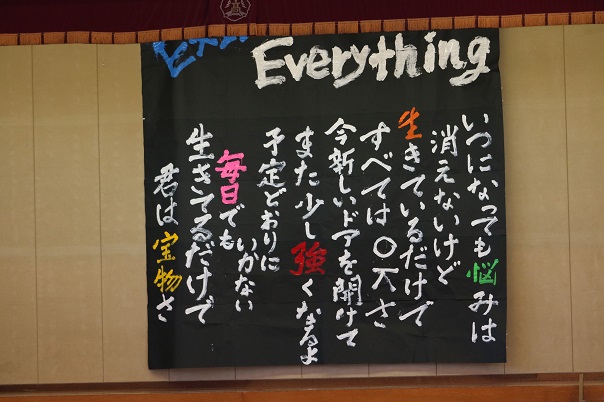 Everything
いつになっても悩みは
消えないけど
生きているだけで
すべてはOKさ
今新しいドアを開けて
また少し強くなるよ
予定どおりに
いかない
毎日でも
生きてるだけで
君は宝物さ